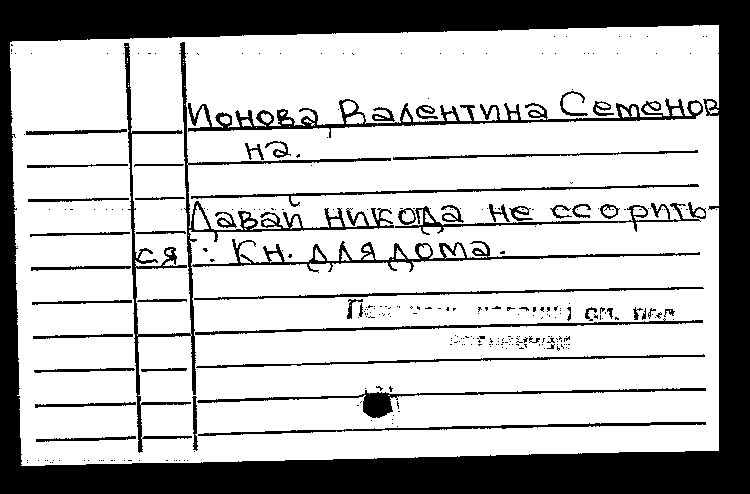 Ионова, Валентина Семенов
на.
Давай никода не ссорить-
ся : Кн. для дома.
см. под